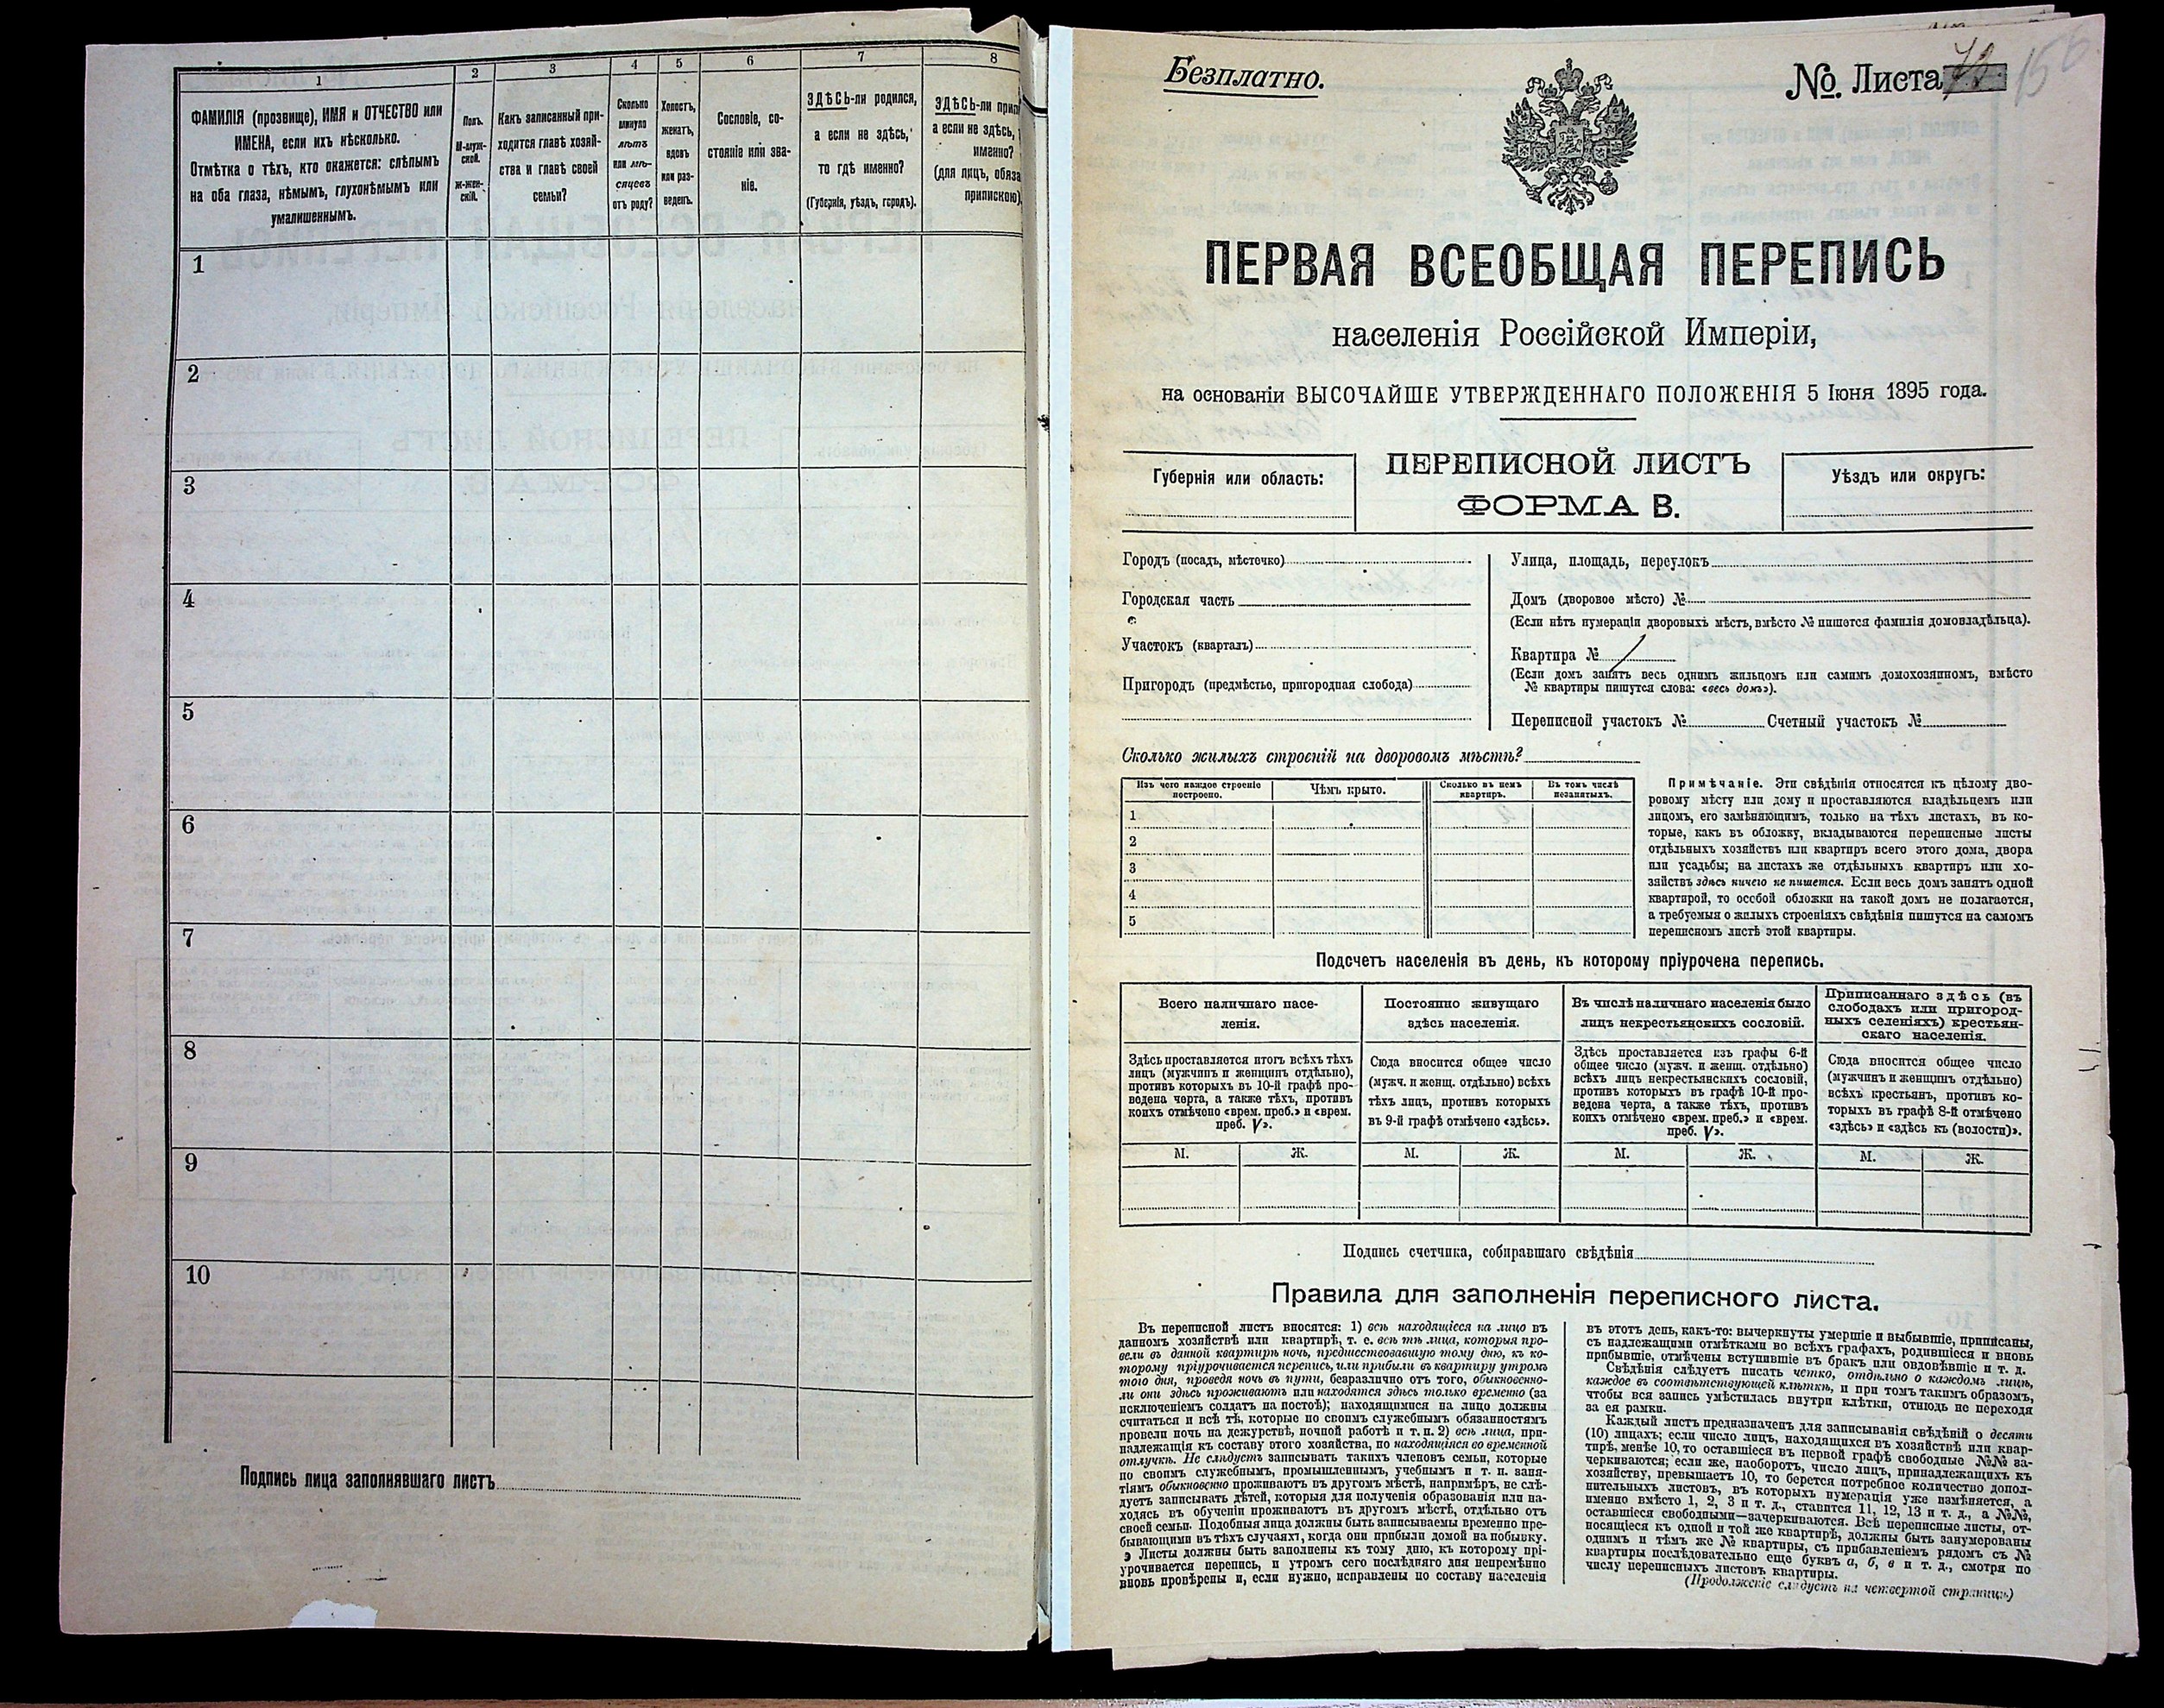 1
2
3
4
5
6
7
8
ФАМИЛІЯ (прозвище), ИМЯ и ОТЧЕСТВО или
ИМЕНА, если ихъ нѣсколько.
Отмѣтка о тѣхъ, кто окажется: слѣпымъ
на оба глаза, нѣмымъ, глухонѣмымъ или
умалишеннымъ.
Полъ.
М-муж-
ской.
Ж-жен-
скій.
Какъ записанный при-
ходится главѣ хозяй-
ства и главѣ своей
семьи?
Сколько
минуло
лѣтъ
или мѣ-
сяцевъ
отъ роду?
Холостъ,
женатъ,
вдовъ
или раз-
веденъ.
Сословіе, со-
стояніе или зва-
ніе.
ЗДѢСЬ-ли родился,
а если не здѣсь,
то гдѣ именно?
(Губернія, уѣздъ, городъ).
ЗДѢСЬ-ли припи
а если не здѣсь,
именно?
(для лицъ, обяза
припискою)
1
2
3
4
5
6
7
8
9
10
Подпись лица заполнявшаго листъ
Безплатно.
№. Листа
156.
ПЕРВАЯ ВСЕОБЩАЯ ПЕРЕПИСЬ
населенія Россійской Имперіи,
на основаніи ВЫСОЧАЙШЕ УТВЕРЖДЕННАГО ПОЛОЖЕНІЯ 5 Іюня 1895 года.
Губернія или область:
ПЕРЕПИСНОЙ ЛИСТЪ
ФОРМА В.
Уѣздъ или округъ:
Городъ (посадъ, мѣстечко)
Городская часть
Участокъ (кварталъ)
Пригородъ (предмѣстье, пригородная слобода)
Улица, площадь, переулокъ
Домъ (дворовое мѣсто) №
(Если нѣтъ нумераціи дворовыхъ мѣстъ, вмѣсто № пишется фамилія домовладѣльца).
Квартира № 1
(Если домъ занятъ весь однимъ жильцомъ или самимъ домохозяиномъ, вмѣсто
№ квартиры пишутся слова: «весь домъ»).
Переписной участокъ № Счетный участокъ №
Сколько жилыхъ строеній на дворовомъ мѣстѣ?
Изъ чего каждое строеніе
построено.
Чѣмъ крыто.
Сколько въ немъ
квартиръ.
Въ томъ числѣ
незанятыхъ.
1
2
3
4
5
Примѣчаніе. Эти свѣдѣнія относятся къ цѣлому дво-
ровому мѣсту или дому и проставляются владѣльцемъ или
лицомъ, его замѣняющимъ, только на тѣхъ листахъ, въ ко-
торые, какъ въ обложку, вкладываются переписные листы
отдѣльныхъ хозяйствъ или квартиръ всего этого дома, двора
или усадьбы; на листахъ же отдѣльныхъ квартиръ или хо-
зяйствъ здѣсь ничего не пишется. Если весь домъ занятъ одной
квартирой, то особой обложки на такой домъ не полагается,
а требуемыя о жилыхъ строеніяхъ свѣдѣнія пишутся на самомъ
переписномъ листѣ этой квартиры.
Подсчетъ населенія въ день, къ которому пріурочена перепись.
Всего наличнаго насе-
ленія.
Здѣсь проставляется итогъ всѣхъ тѣхъ
лицъ (мужчинъ и женщинъ отдѣльно),
противъ которыхъ въ 10-й графѣ про-
ведена черта, а также тѣхъ, противъ
коихъ отмѣчено «врем. преб.» и «врем.
преб. V».
Постоянно живущаго
здѣсь населенія.
Сюда вносится общее число
(мужч. и женщ. отдѣльно) всѣхъ
тѣхъ лицъ, противъ которыхъ
въ 9-й графѣ отмѣчено «здѣсь».
Въ числѣ наличнаго населенія было
лицъ некрестьянскихъ сословій.
Здѣсь проставляется изъ графы 6-й
общее число (мужч. и женщ. отдѣльно)
всѣхъ лицъ некрестьянскихъ сословій,
противъ которыхъ въ графѣ 10-й про-
ведена черта, а также тѣхъ, противъ
коихъ отмѣчено «врем. преб.» и «врем.
преб. V».
Приписаннаго здѣсь (въ
слободахъ или пригород-
ныхъ селеніяхъ) крестьян-
скаго населенія.
Сюда вносится общее число
(мужчинъ и женщинъ отдѣльно)
всѣхъ крестьянъ, противъ ко-
торыхъ въ графѣ 8-й отмѣчено
«здѣсь» и «здѣсь къ (волости)».
М. Ж. М. Ж. М. Ж. М. Ж.
Подпись счетчика, собиравшаго свѣдѣнія
Правила для заполненія переписного листа.
Въ переписной листъ вносятся: 1) всѣ находящіеся на лицо въ
данномъ хозяйствѣ или квартирѣ, т. е. всѣ тѣ лица, которыя про-
вели въ данной квартирѣ ночь, предшествовавшую тому дню, къ ко-
торому пріурочивается перепись, или прибыли въ квартиру утромъ
того дня, проведя ночь въ пути, безразлично отъ того, обыкновенно-
ли они здѣсь проживаютъ или находятся здѣсь только временно (за
исключеніемъ солдатъ на постоѣ); находящимися на лицо должны
считаться и всѣ тѣ, которые по своимъ служебнымъ обязанностямъ
провели ночь на дежурствѣ, ночной работѣ и т. п. 2) всѣ лица, при-
надлежащія къ составу этого хозяйства, но находящіяся во временной
отлучкѣ. Не слѣдуетъ записывать такихъ членовъ семьи, которые
по своимъ служебнымъ, промышленнымъ, учебнымъ и т. п. заня-
тіямъ обыкновенно проживаютъ въ другомъ мѣстѣ, напримѣръ, не слѣ-
дуетъ записывать дѣтей, которыя для полученія образованія или на-
ходясь въ обученіи проживаютъ въ другомъ мѣстѣ, отдѣльно отъ
своей семьи. Подобныя лица должны быть записываемы временно пре-
бывающими въ тѣхъ случаяхъ, когда они прибыли домой на побывку.
Листы должны быть заполнены къ тому дню, къ которому прі-
урочивается перепись, и утромъ сего послѣдняго дня непремѣнно
вновь провѣрены и, если нужно, исправлены по составу населенія
въ этотъ день, какъ-то: вычеркнуты умершіе и выбывшіе, приписаны,
съ надлежащими отмѣтками во всѣхъ графахъ, родившіеся и вновь
прибывшіе, отмѣчены вступившіе въ бракъ или овдовѣвшіе и т. д.
Свѣдѣнія слѣдуетъ писать четко, отдѣльно о каждомъ лицѣ,
каждое въ соотвѣтствующей клѣткѣ, и при томъ такимъ образомъ,
чтобы вся запись умѣстилась внутри клѣтки, отнюдь не переходя
за ея рамки.
Каждый листъ предназначенъ для записыванія свѣдѣній о десяти
(10) лицахъ; если число лицъ, находящихся въ хозяйствѣ или квар-
тирѣ, менѣе 10, то оставшіеся въ первой графѣ свободные №№ за-
черкиваются; если же, наоборотъ, число лицъ, принадлежащихъ къ
хозяйству, превышаетъ 10, то берется потребное количество допол-
нительныхъ листовъ, въ которыхъ нумерація уже измѣняется, а
именно вмѣсто 1, 2, 3 и т. д., ставится 11, 12, 13 и т. д., а №№,
оставшіеся свободными—зачеркиваются. Всѣ переписные листы, от-
носящіеся къ одной и той же квартирѣ, должны быть занумерованы
однимъ и тѣмъ же № квартиры, съ прибавленіемъ рядомъ съ №
квартиры послѣдовательно еще буквъ а, б, в и т. д., смотря по
числу переписныхъ листовъ квартиры.
(Продолженіе слѣдуетъ на четвертой страницѣ)